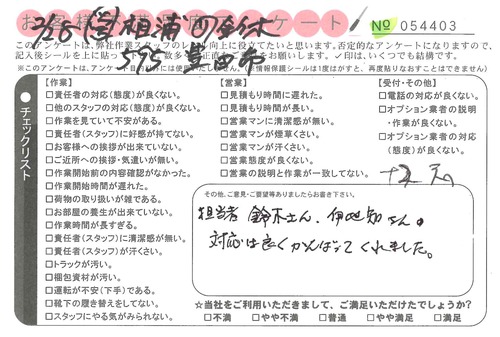 お客様 アンケート
№ 054403
2/28
豊田市
は、弊社作業スタッフのレベル向上に役立てたいと思います。否定的なアンケートになりますので、
記入後シールを上に貼って下さい。
お願いします。✓印は、いくつでも結構です。
(※このアンケートは、アンケート目的外には使用いたしません。また情報保護シールは1度はがすと、再度貼りなおすことはできません)
チェックリスト
【作業】
□責任者の対応(態度)が良くない。
□他のスタッフの対応(態度)が良くない。
□作業を見ていて不安がある。
□責任者(スタッフ)に好感が持てない。
□お客様への挨拶が出来ていない。
□ご近所への挨拶・気遣いが無い。
□作業開始前の内容確認がなかった。
□作業開始時間が遅れた。
□荷物の取り扱いが雑である。
□お部屋の養生が出来ていない。
□作業時間が長すぎる。
□責任者(スタッフ)に清潔感が無い。
□責任者(スタッフ)が汗くさい。
□トラックが汚い。
□梱包資材が汚い。
□運転が不安(下手)である。
□靴下の履き替えをしてない。
□スタッフにやる気がみられない。
【営業】
□見積もり時間に遅れた。
□見積もり時間が長い。
□営業マンに清潔感が無い。
□営業マンが煙草くさい。
□営業マンが汗くさい。
□営業態度が良くない。
□営業の説明と作業が一致してない。
【受付・その他】
□電話の対応が良くない。
□オプション業者の説明
・作業が良くない。
□オプション業者の対応
(態度)が良くない。
その他、ご意見・ご要望等ありましたらお書き下さい。
担当者 鈴木さん、伊地知さんの
対応は良くがんばってくれました。
☆当社をご利用いただきまして、ご満足いただけたでしょうか?
□不満 □やや不満 □普通 □やや満足 □満足